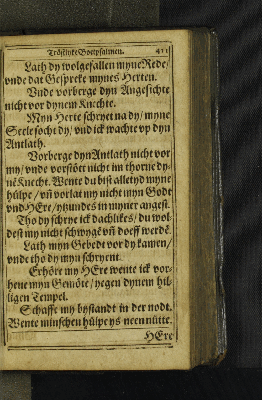 Tröstlyke Boetpsalmen. 411
Lath dy wolgefallen myne Rede/
vnde dat Gespreke mynes Herten.
Vnde vorberge dyn Angesichte
nicht vor dynem Knechte.
Myn Herte schryet na dy/ myne
Seele socht dy/ vnd ick wachte vp dyn
Antlath.
Vorberge dyn Antlath nicht vor
my/ vnde vorstött nicht im thorne dy-
nē Knecht. Wente du bist alletyd myne
hülpe/ vñ vorlat my nicht myn Godt
vnd HEre/ ytzundes in myner angest.
Tho dy schrye ick dachlikes/ du wol-
dest my nicht schwygē vñ doeff werdē.
Lath myn Gebedt vor dy kamen/
vnde thō dy myn schryent.
Erhöre my HEre wente ick vor-
heue myn Gemöte/ yegen dynem hil-
ligen Tempel.
Schaffe my bystandt in der nodt.
Wente minschen hülpe ys neen nütte.
HEre